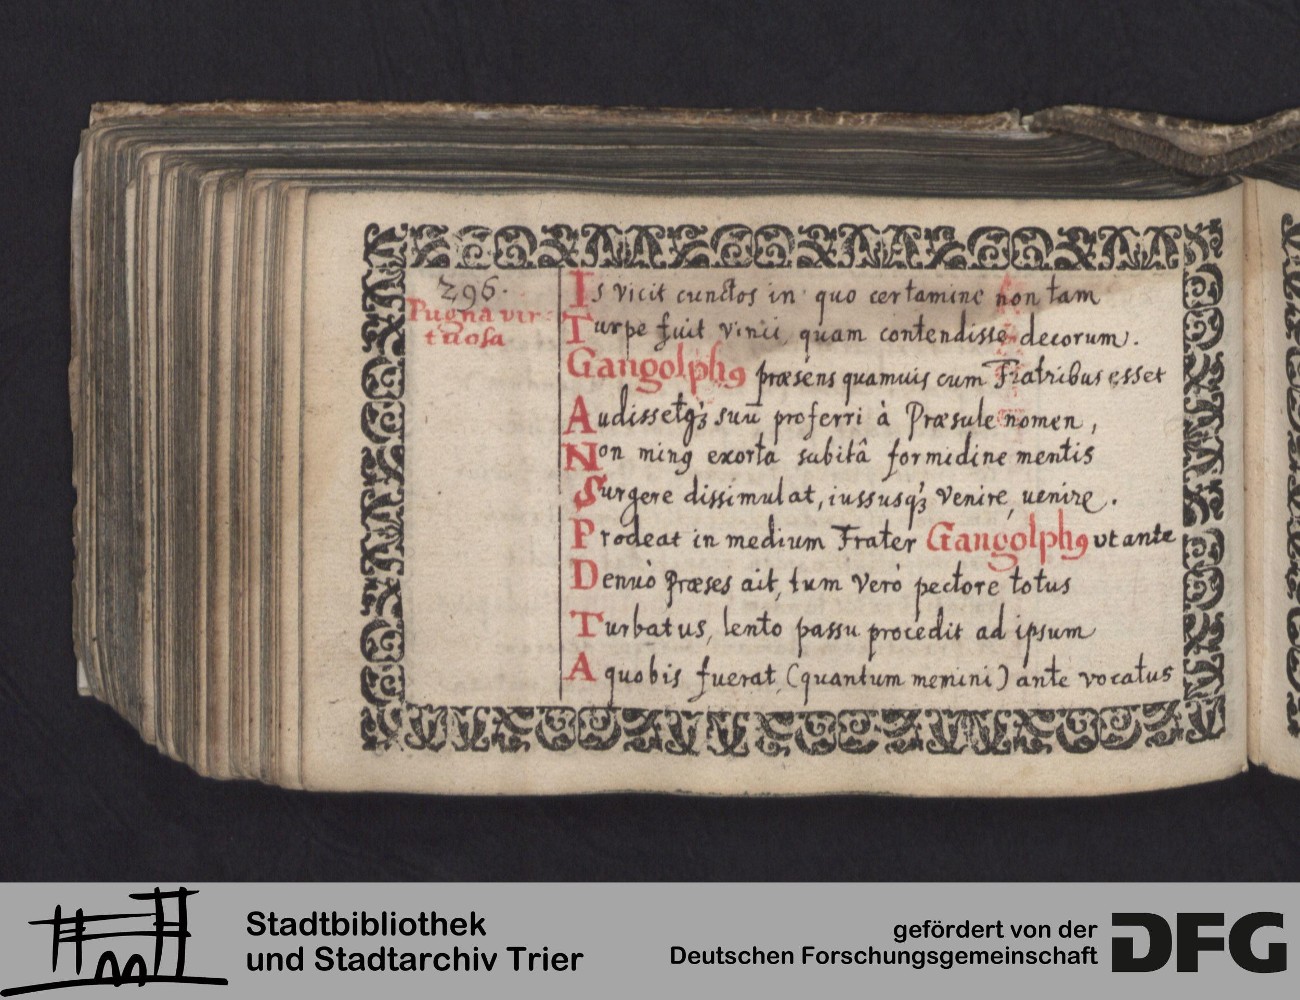 296.
Pugna vir-
tuosa
Is vicit cunctos in quo certamine non tam
Turpe fuit vinci, quam contendisse decorum.
Gangolphꝰ præsens quamuis cum Fratribus esset
Audissetqꝫ suū proferri à Præsule nomen,
Non minꝰ exorta subitâ formidine mentis
Surgere dissimulat, iussusqꝫ venire, uenire.
Prodeat in medium Frater Gangolphꝰ vt ante
Denuò Præses ait, tum verò pectore totus
Turbatus, lento passu procedit ad ipsum
A quobis fuerat, (quantum memini) ante vocatus
Stadtbibliothek
und Stadtarchiv Trier
gefördert von der
Deutschen Forschungsgemeinschaft
DFG